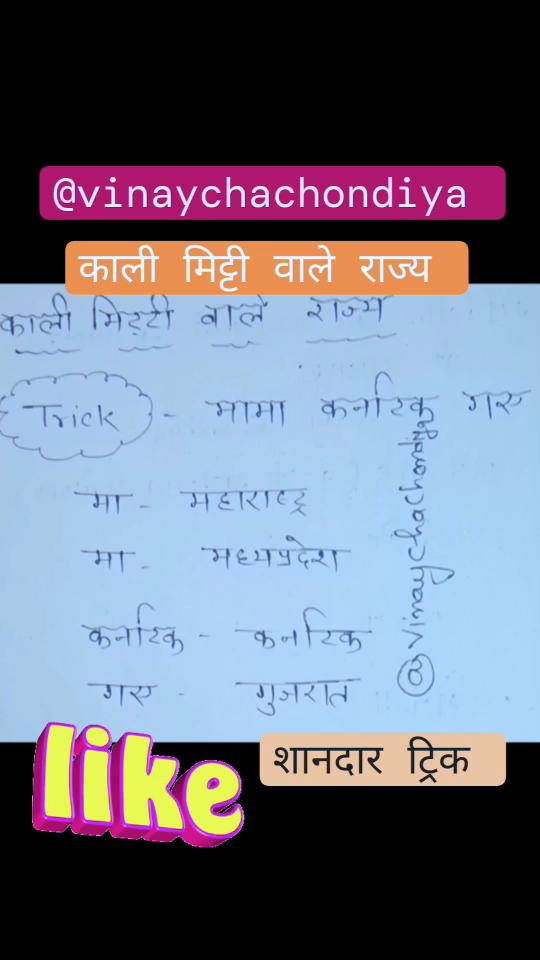 @vinaychachondiya
काली मिट्टी वाले राज्य
काली मिट्टी वाले राज्य
Trick - मामा कर्नाटक गए
मा - महाराष्ट्र
मा - मध्यप्रदेश
कर्नाटक - कर्नाटक
गए - गुजरात
@vinaychachondiya
like
शानदार ट्रिक